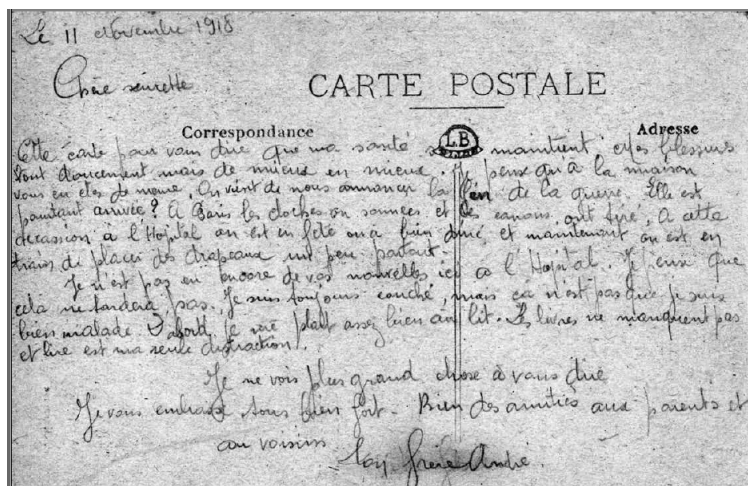 Le 11 Novembre 1918
Chère seurette
CARTE POSTALE
Correspondance
LB
Adresse
Cette carte pour vous dire que ma santé se maintient. Mes blessures
vont doucement mais de mieux en mieux. Je pense qu'à la maison
vous en êtes de même. On vient de nous annoncer la fin de la guerre. Elle est
pourtant arrivée ? A Paris les cloches on sonnées et les canons ont tiré. A cette
occasion à l'Hopital on est en fête on a bien diné et maintenant on est en
train de placer des drapeaux un peu partout.
Je n'est pas eu encore de vos nouvelles ici a l'Hopital. Je pense que
cela ne tardera pas. Je suis toujours couché, mais ca n'est pas que je suis
bien malade D'abord je me plait assez bien au lit. Les livres ne manquent pas
et lire est ma seule distraction.
Je ne vois plus grand chose à vous dire
Je vous embrasse tous bien fort - Bien des amitiés aux parents et
au voisins
Ton frère André.